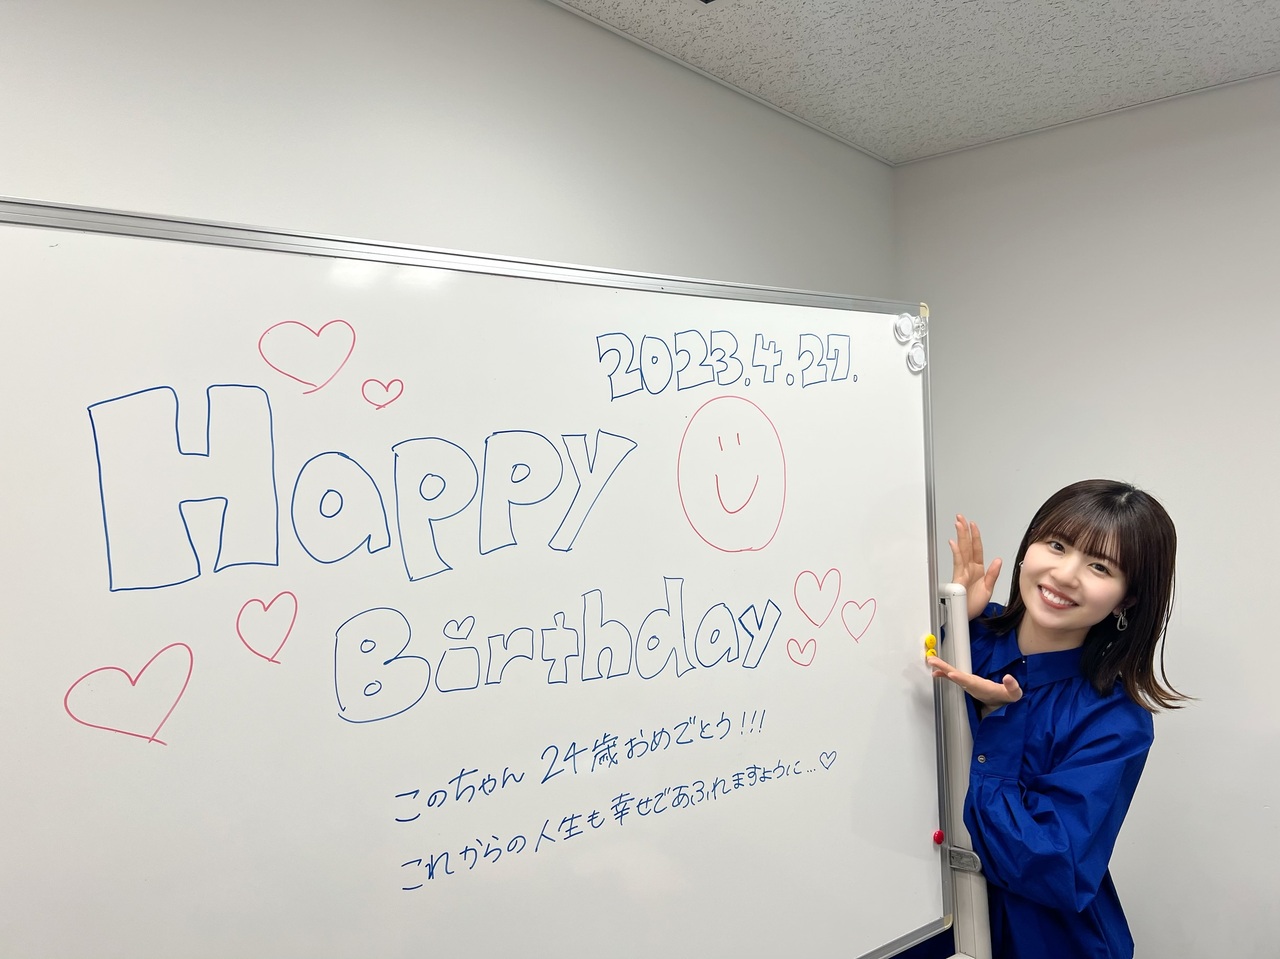 2023.4.27.
Happy
Birthday
このちゃん 24歳おめでとう!!!
これからの人生も幸せであふれますように...♡